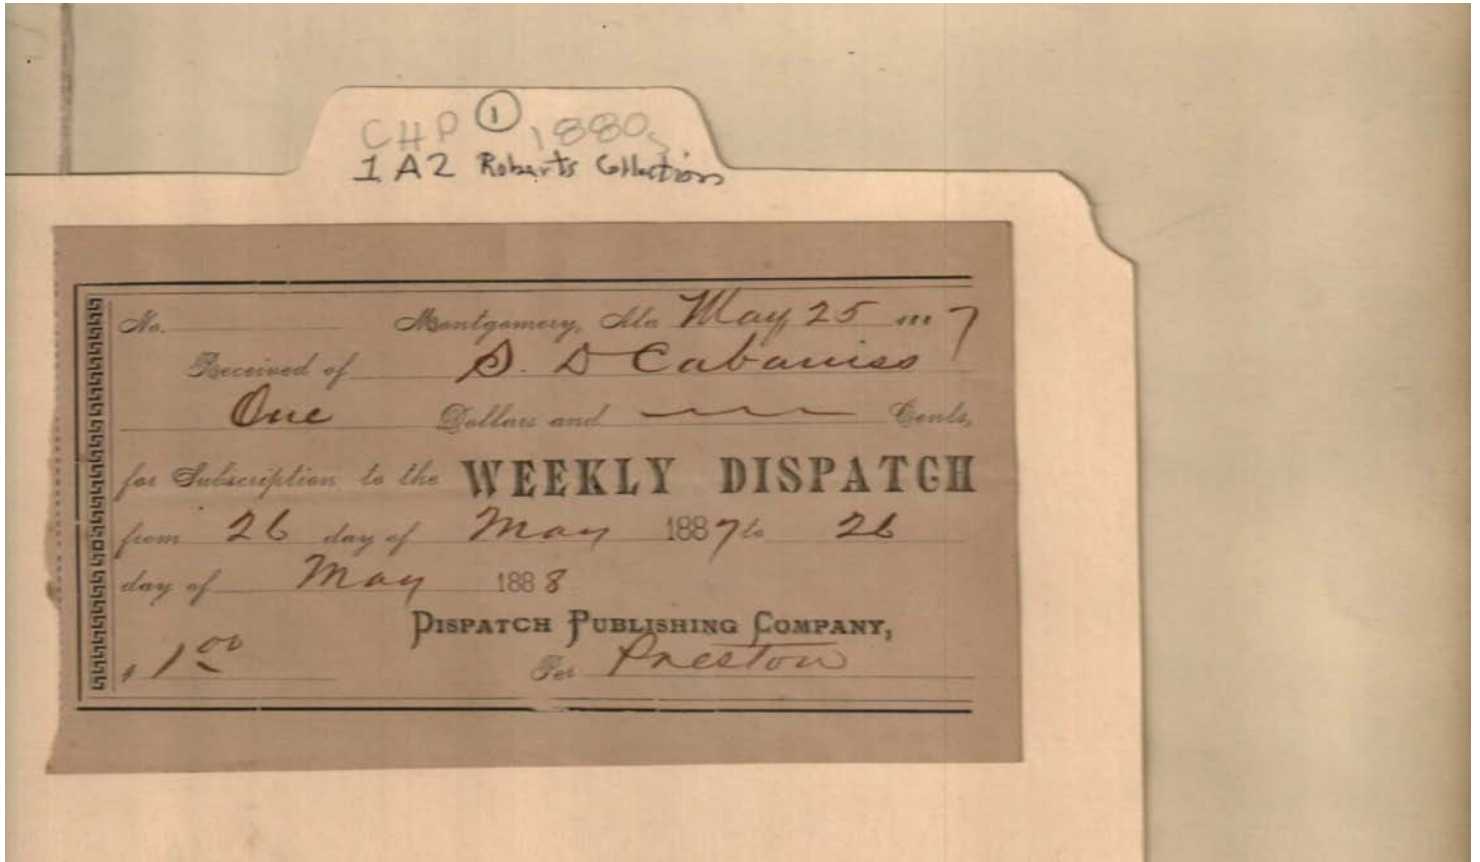 CHP 1 1880s
1A2 Roberts Collection
No. Montgomery, Ala May 25 1887
Received of S. D Cabaniss
One Dollars and Cents,
for Subscription to the WEEKLY DISPATCH
from 26 day of May 1887 to 26
day of May 1888
DISPATCH PUBLISHING COMPANY,
$ 1.00 Per Preston